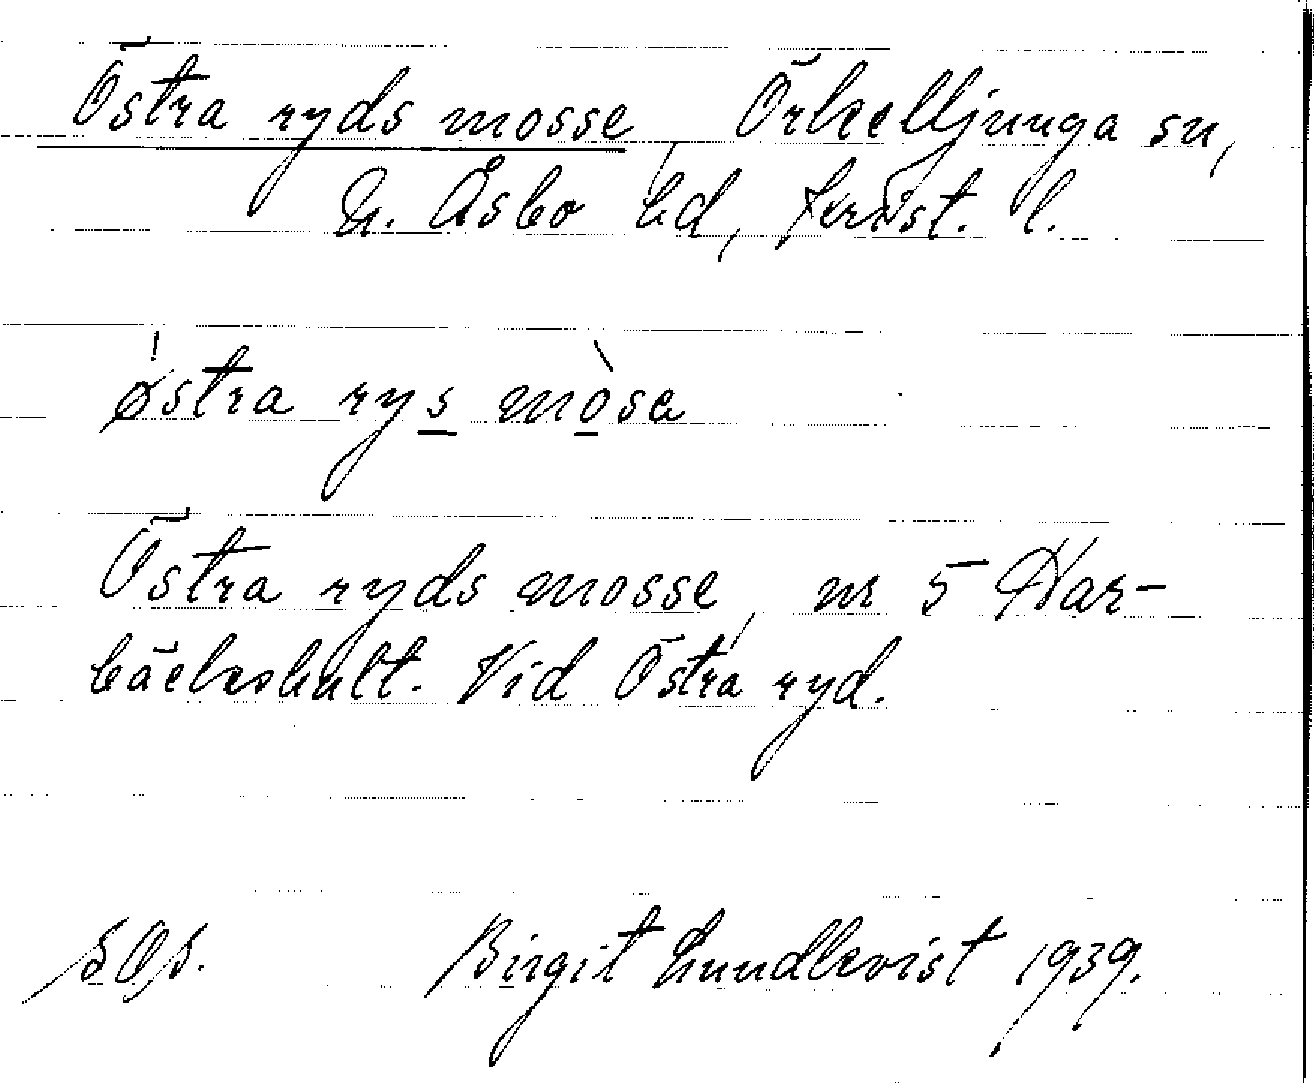 Östra ryds mosse, Örkelljunga sn,
N. Åsbo hd, Krist. l.
østra rys mòsa
Östra ryds mosse, nr 5 Har-
bäckshult. Vid Östra ryd.
Birgit Lundkvist 1939.